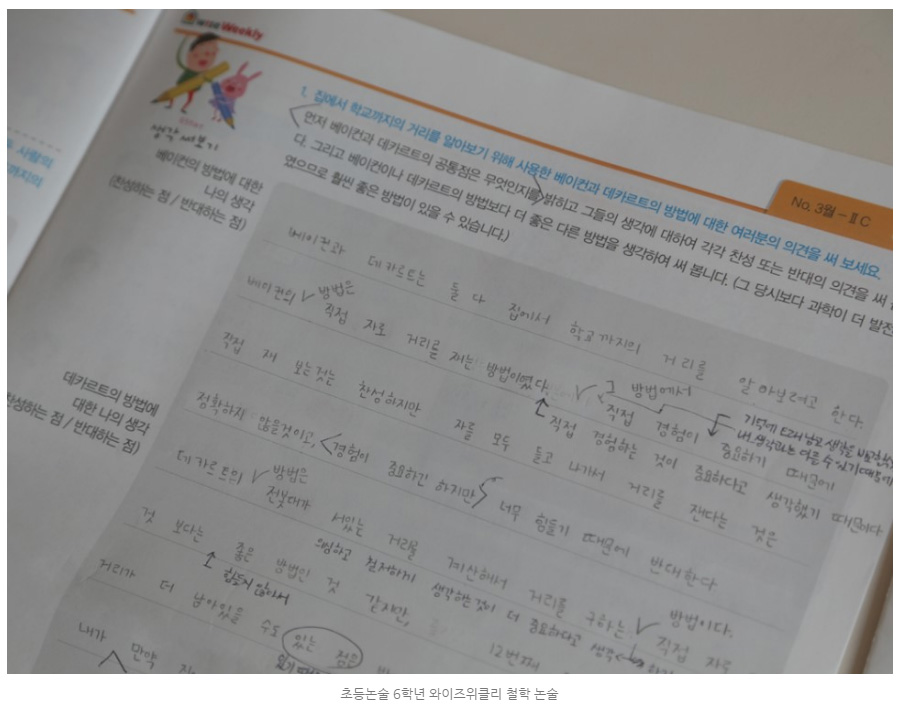 WISE Weekly
생각 써 보기
No. 3월 - Ⅱ C
1. 집에서 학교까지의 거리를 알아보기 위해 사용한 베이컨과 데카르트의 방법에 대한 여러분의 의견을 써 보세요.
먼저 베이컨과 데카르트의 공통점은 무엇인지를 밝히고 그들의 생각에 대하여 각각 찬성 또는 반대의 의견을 써
다. 그리고 베이컨이나 데카르트의 방법보다 더 좋은 다른 방법을 생각하여 써 봅니다. (그 당시보다 과학이 더 발전
였으므로 훨씬 좋은 방법이 있을 수 있습니다.)
베이컨의 방법에 대한
나의 생각
(찬성하는 점 / 반대하는 점)
베이컨과 데카르트는 둘 다 집에서 학교까지의 거리를 알아보려고 한다.
베이컨의 방법은
직접 자로 거리를 재는 방법이였다. 그 방법에서
직접 경험이 중요하기 때문에
직접 경험하는 것이 중요하다고 생각했기 때문이다
직접 재 보는것는 찬성하지만 자를 모두 들고 나가서 거리를 잰다는 것은
정확하지 않을것이고, 경험이 중요하긴 하지만 너무 힘들기 때문에 반대한다
데카르트의 방법에
대한 나의 생각
찬성하는 점 / 반대하는 점)
데카르트의 방법은
전봇대가 서있는 거리를 계산해서 거리를 구하는 방법이다.
직접 자로
것 보다는 좋은 방법인 것 같지만, 12번째
힘들지 않아서
철저하게 생각하는것이 더 중요하다고
거리가 더 남아있을 수도 있는 점은
내가 만약
초등논술 6학년 와이즈위클리 철학 논술